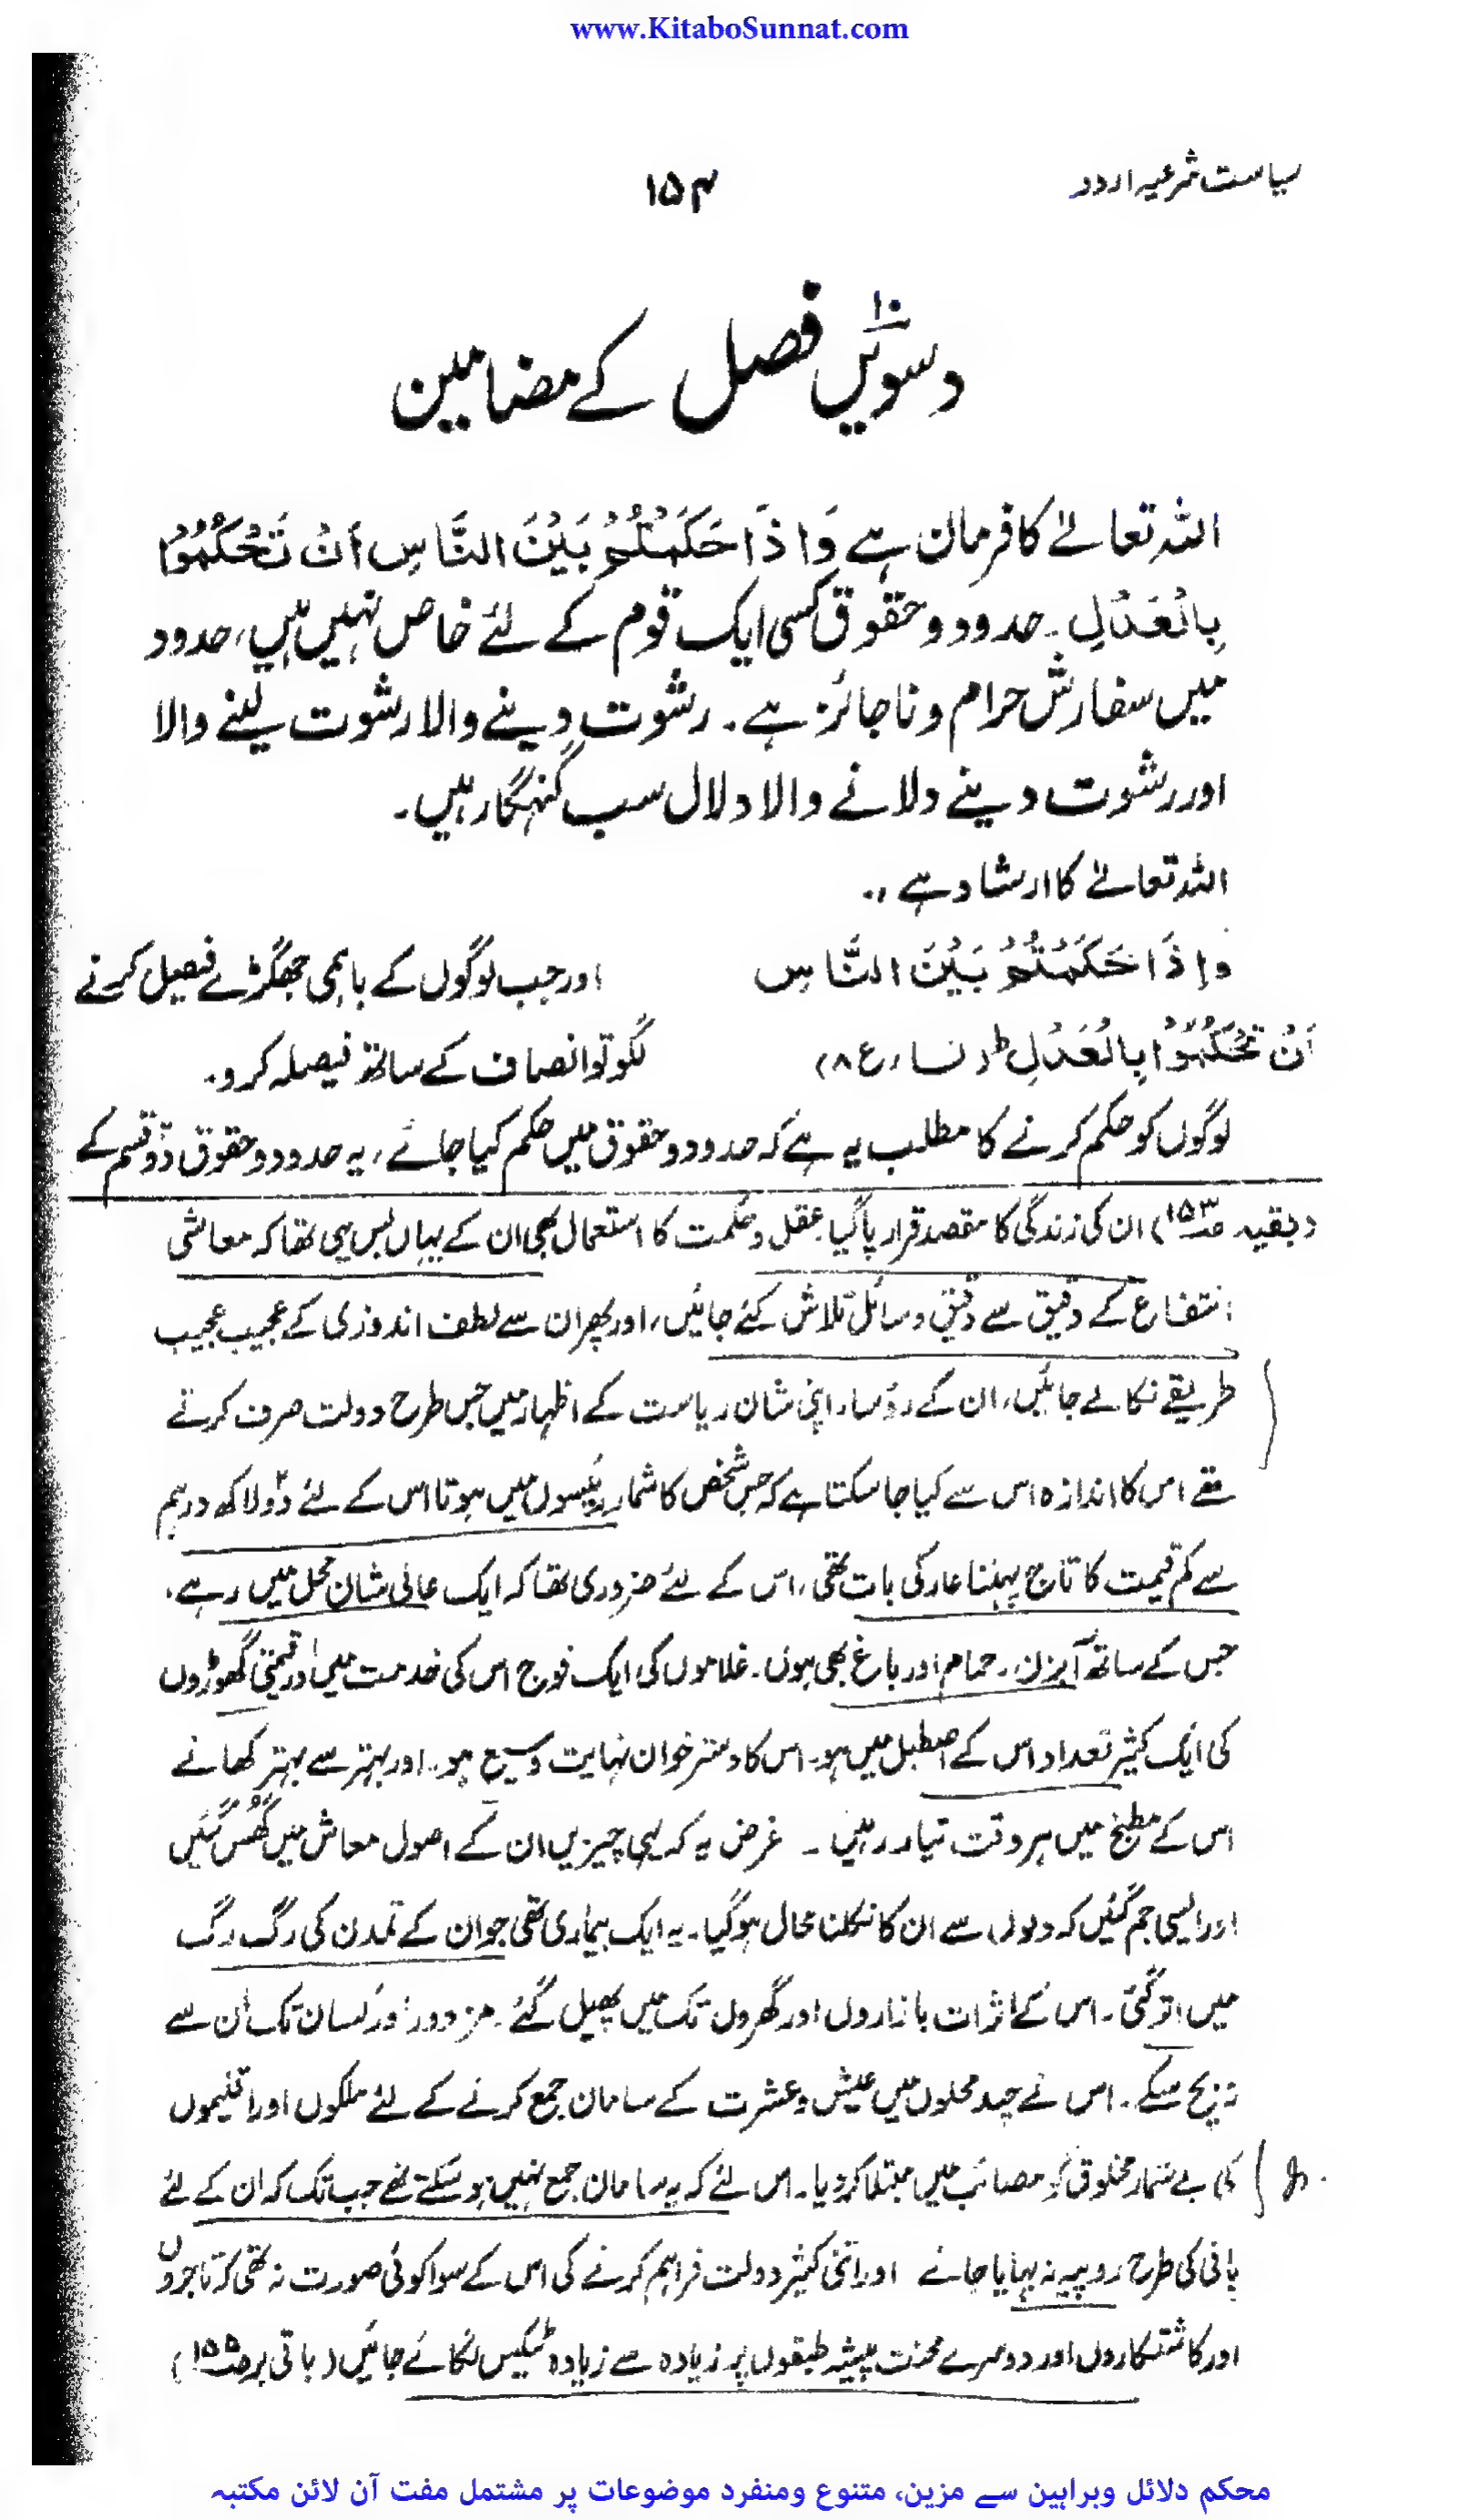 www.KitaboSunnat.com
سیاست شرعیہ اردو
۱۵۴
دسویں۱۰ فصل کے مضامین
اللہ تعالےٰ کا فرمان ہے وَاِذَا حَکَمْتُمْ بَیْنَ النَّاسِ اَنْ تَحْکُمُوْا
بِالْعَدْلِ۔ حدود و حقوق کسی ایک قوم کے لئے خاص نہیں ہیں، حدود
میں سفارش حرام و ناجائز ہے۔ رشوت دینے والا رشوت لینے والا
اور رشوت دینے دلانے والا دلال سب گنہگار ہیں۔
اللہ تعالےٰ کا ارشاد ہے ،۔
وَاِذَا حَکَمْتُمْ بَیْنَ النَّاسِ
اَنْ تَحْکُمُوْا بِالْعَدْلِ ط (نساء ع ۸)
اور جب لوگوں کے باہمی جھگڑے فیصل کرنے
لگو تو انصاف کے ساتھ فیصلہ کرو۔
لوگوں کو حکم کرنے کا مطلب یہ ہے کہ حدود و حقوق میں حکم کیا جائے، یہ حدود و حقوق دو۲ قسم کے
(بقیہ صـ۱۵۳) ان کی زندگی کا مقصد قرار پا گیا، عقل و حکمت کا استعمال بھی ان کے یہاں بس یہی تھا کہ معاشی
انتفاع کے دقیق سے دقیق وسائل تلاش کئے جائیں، اور پھر ان سے لطف اندوزی کے عجیب عجیب
طریقے نکالے جائیں، ان کے رؤساء اپنی شان ریاست کے اظہار میں جس طرح دولت صرف کرتے
تھے اس کا اندازہ اس سے کیا جا سکتا ہے کہ جس شخص کا شمار رئیسوں میں ہوتا اس کے لئے دو۲ لاکھ درہم
سے کم قیمت کا تاج پہننا عار کی بات تھی، اس کے لئے ضروری تھا کہ ایک عالی شان محل میں رہے،
جس کے ساتھ آبزن۔ حمام اور باغ بھی ہوں۔ غلاموں کی ایک فوج اس کی خدمت میں اور قیمتی گھوڑوں
کی ایک کثیر تعداد اس کے اصطبل میں ہو۔ اس کا دسترخوان نہایت وسیع ہو۔ اور بہتر سے بہتر کھانے
اس کے مطبخ میں ہر وقت تیار رہیں ۔ غرض یہ کہ یہی چیزیں ان کے اصول معاش میں گھس گئیں
اور ایسی جم گئیں کہ دلوں سے ان کا نکلنا محال ہو گیا۔ یہ ایک بیماری تھی جو ان کے تمدن کی رگ رگ
میں اتر گئی۔ اس کے اثرات بازاروں اور گھروں تک میں پھیل گئے۔ مزدور اور کسان تک ان سے
نہ بچ سکے۔ اس نے چند محلوں میں عیش و عشرت کے سامان جمع کرنے کے لئے ملکوں اور اقلیموں
کی بے شمار مخلوق کو مصائب میں مبتلا کر دیا۔ اس لئے کہ یہ سامان جمع نہیں ہو سکتے تھے جب تک کہ ان کے لئے
پانی کی طرح روپیہ نہ بہایا جائے اور اتنی کثیر دولت فراہم کرنے کی اس کے سوا کوئی صورت نہ تھی کہ تاجروں
اور کاشتکاروں اور دوسرے محنت پیشہ طبقوں پر زیادہ سے زیادہ ٹیکس لگائے جائیں (باقی بر صـ۱۵۵)
محکم دلائل وبراہین سے مزین، متنوع ومنفرد موضوعات پر مشتمل مفت آن لائن مکتبہ